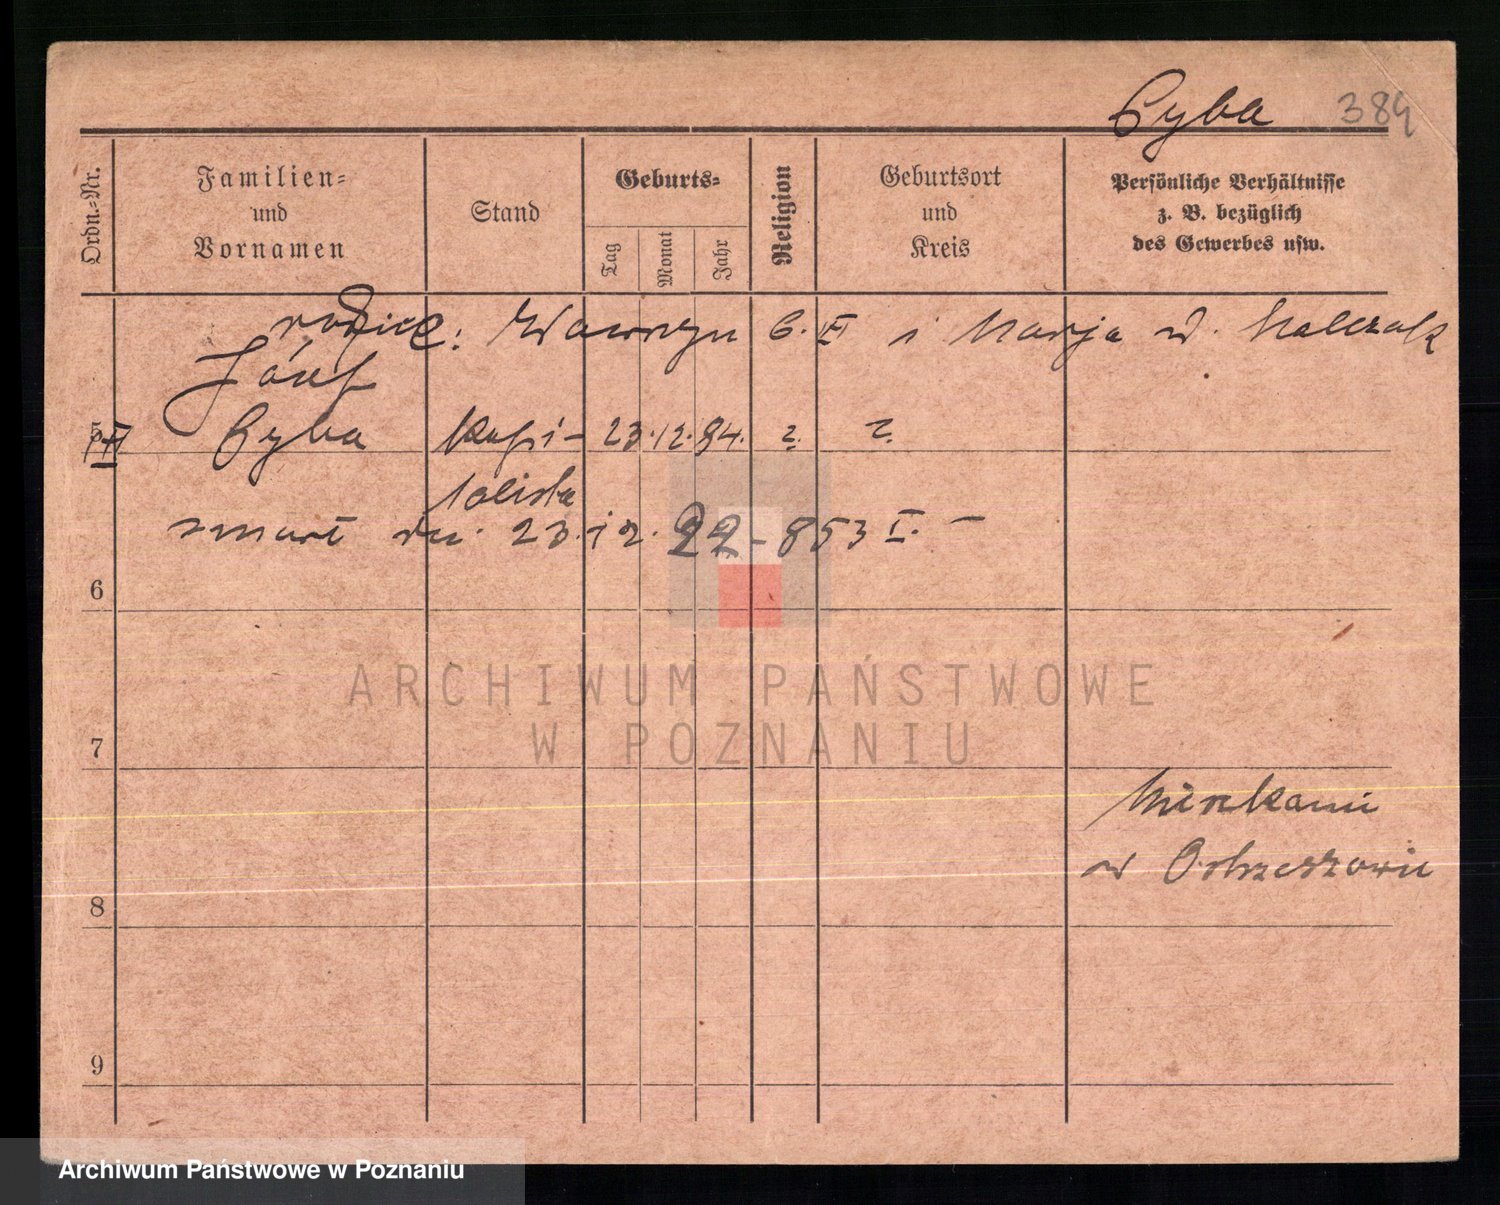 Cyba 384
Ordn.-Nr.
Familien-
und
Vornamen
Stand
Geburts-
Tag
Monat
Jahr
Religion
Geburtsort
und
Kreis
Persönliche Verhältnisse
z. B. bezüglich
des Gewerbes usw.
rodzice: Wawrzyn C. i Marja w.
Józef
Cyba Kapi- 23. 12. 84. ? ?
talista
zmarł dn. 23.12. 22 - 853 I. -
6
7
Mieszkanie
w Ostrzeszowie
8
9
ARCHIWUM PAŃSTWOWE
W POZNANIU
Archiwum Państwowe w Poznaniu